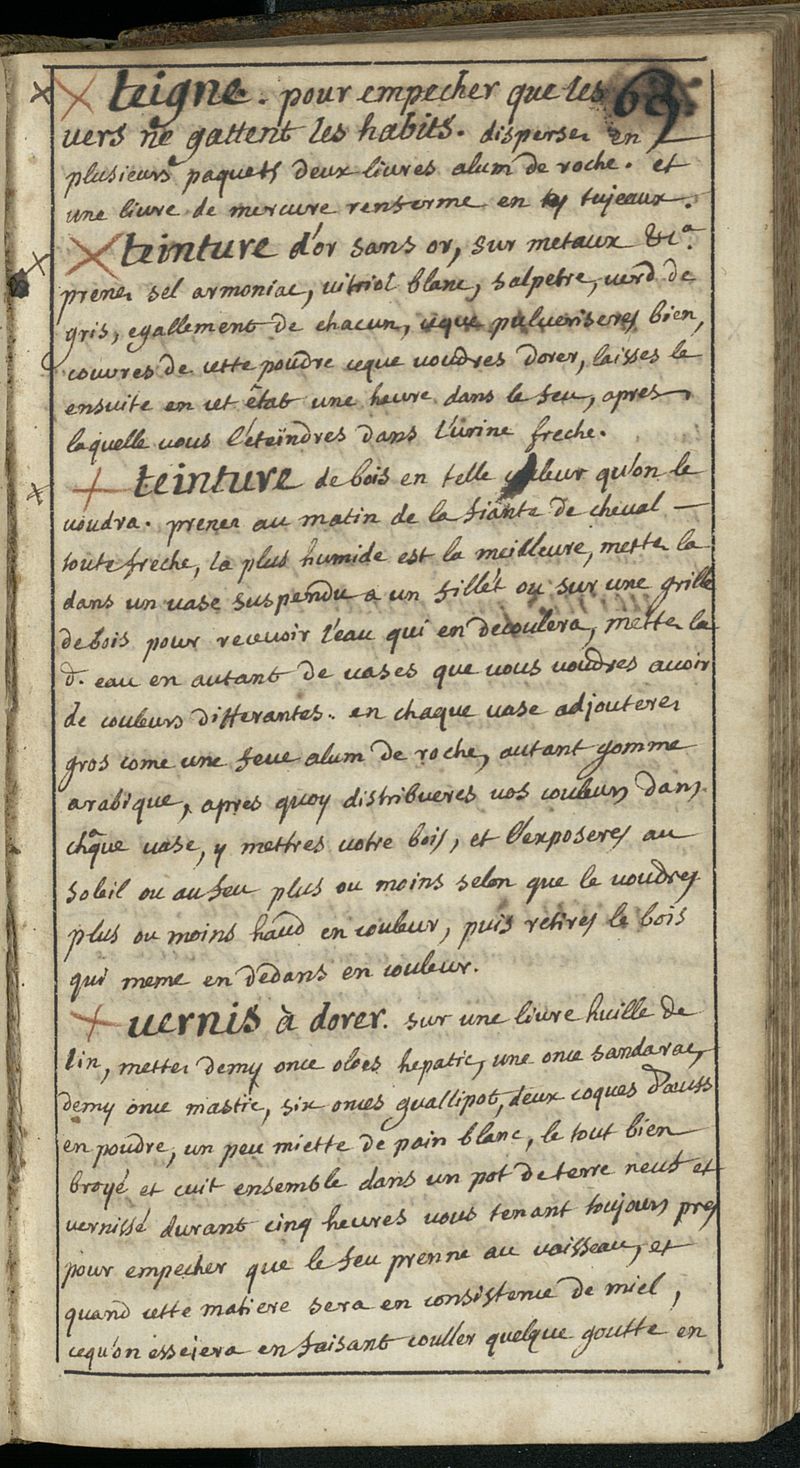 teigne. pour empecher que les 69.
vers ne gattent les habits. disperser en
plusieurs paquets deux livres alum de roche. et
une livre de mercure renferme en tujeaux.
teinture d'or sans or, sur metaux &c.a
prenes sel armoniac, vitriol blanc, salpetre, verd de
gris, egallement de chacun, ceque pulveriseres bien,
couvres de cette poudre ceque voudres dorer, laisses le
ensuite en cet êtat une heure dans le feu, apres
laquelle vous l'éteindres dans l'urine freche.
teinture de bois en telle couleur qu'on le
voudra. prenes au matin de la fiante de cheval —
toute freche, la plus humide est la meilleure, mettes la
dans un vase suspendu a un fillet ou sur une grille
de bois pour recevoir l'eau qui en decoulera, mettes la
d. eau en autant de vases que vous voudres avoir
de couleurs differantes. en chaque vase adjouteres
gros come une feve alum de roche, autant gomme
arabique, apres quoy distribueres vos couleurs dans
chãque vase, y mettres votre bois, et l'exposeres au
soleil ou au feu plus ou moins selon que le voudres
plus ou moins haud en couleur, puis retires le bois
qui meme en dedans en couleur.
vernis à dorer. sur une livre huille de
lin, mettes demy once oloes hepatic, une once sandarac,
demy once mastic, six onces guallipot, deux coques d'œufs
en poudre, un peu miette de pain blanc, le tout bien
broyé et cuit ensemble dans un pot de terre neuf et
vernissé durant cinq heures vous tenant toujours pres
pour empecher que le feu prenne au vaisseau, et
quand cette matiere sera en consistence de miel,
cequ'on esseiera en faisant couller quelque goutte en